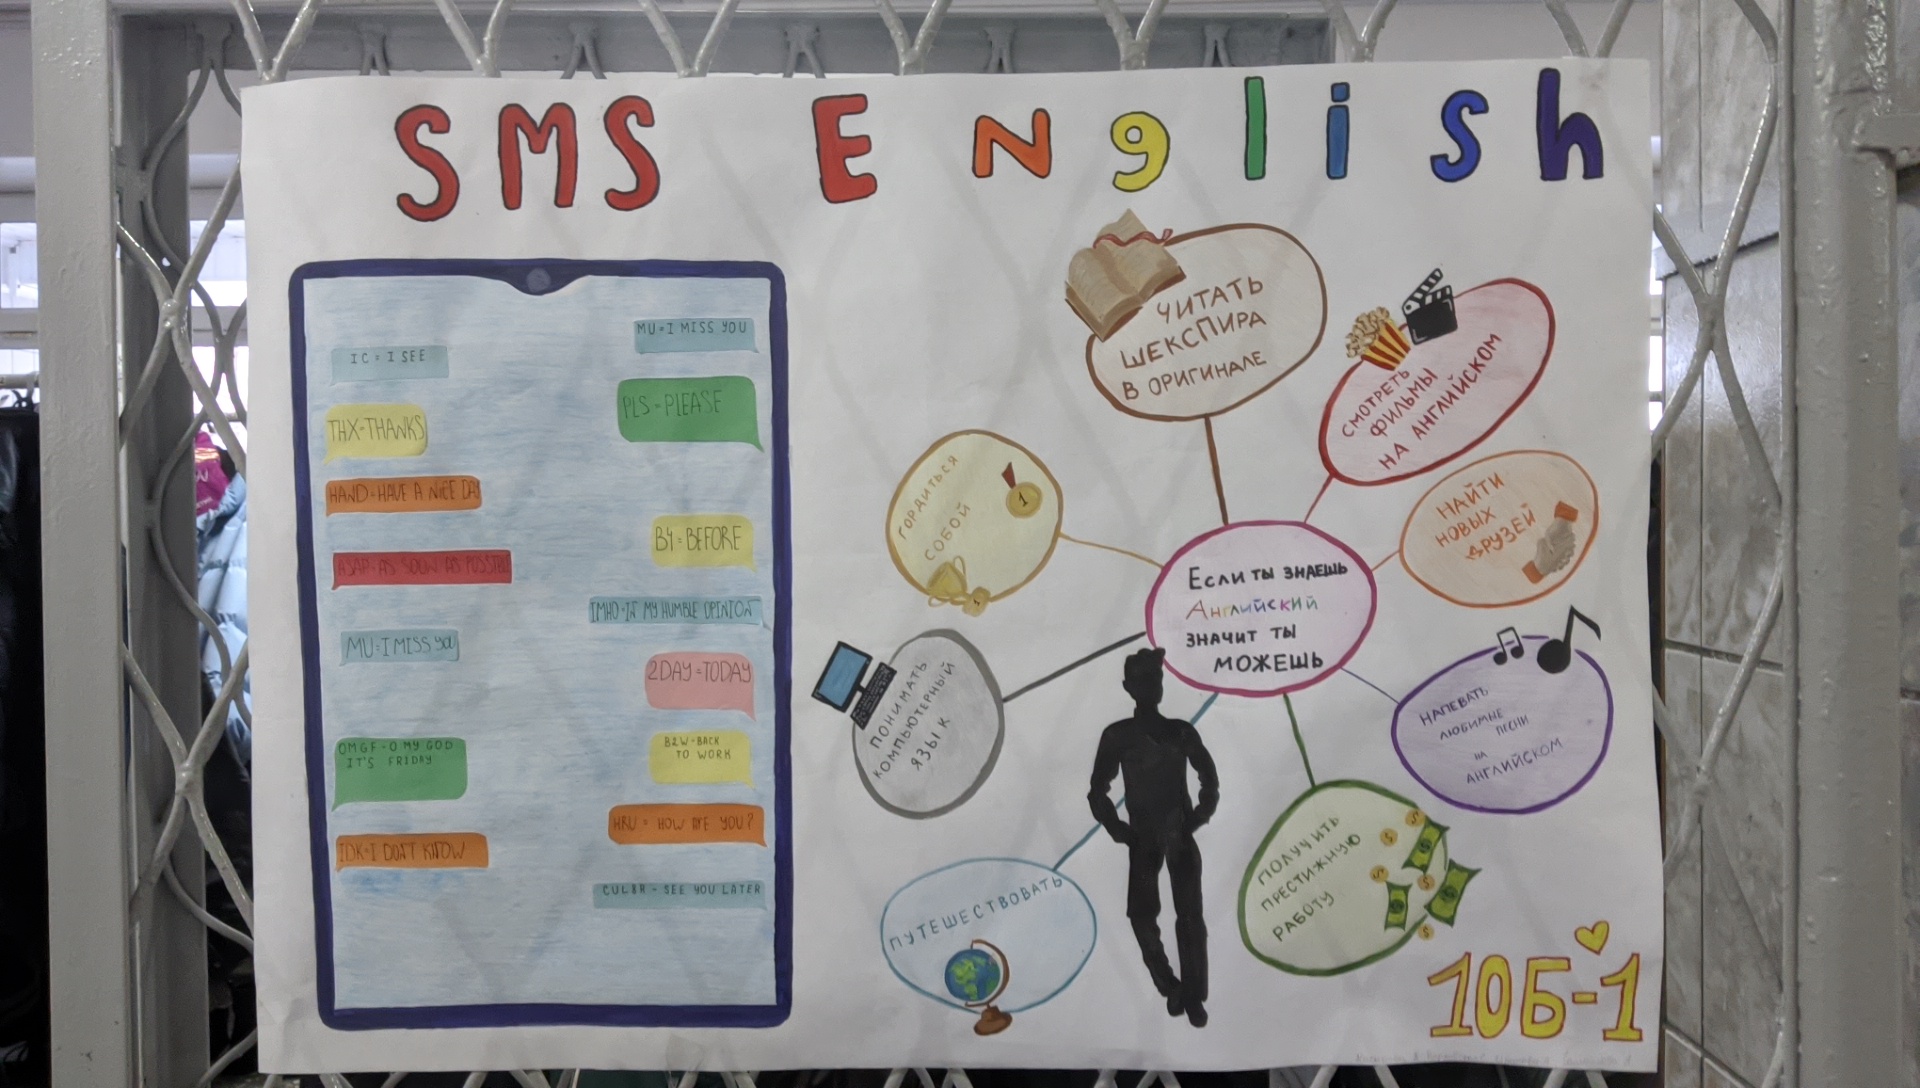 SMS English
IC = I SEE
MU=I MISS YOU
THX-THANKS
PLS=PLEASE
HAND=HAVE A NICE DA
B4=BEFORE
ASAP-AS SOON AS POSSIBL
IMHO-IN MY HUMBLE OPINION
MU=I MISS YOU
2DAY=TODAY
OMGF-O MY GOD
IT'S FRIDAY
B2W-BACK
TO WORK
HRU = HOW ARE YOU?
IDK=I DON'T KNOW
CUL8R - SEE YOU LATER
ЧИТАТЬ
ШЕКСПИРА
В ОРИГИНАЛЕ
СМОТРЕТЬ
ФИЛЬМЫ
НА АНГЛИЙСКОМ
ГОРДИТЬСЯ
СОБОЙ
1
НАЙТИ
НОВЫХ
ДРУЗЕЙ
ЕСЛИ ТЫ ЗНАЕШЬ
Английский
ЗНАЧИТ ТЫ
МОЖЕШЬ
ПОНИМАТЬ
КОМПЬЮТЕРНЫЙ
ЯЗЫК
НАПЕВАТЬ
ЛЮБИМЫЕ ПЕСНИ
НА
АНГЛИЙСКОМ
ПУТЕШЕСТВОВАТЬ
ПОЛУЧИТЬ
ПРЕСТИЖНУЮ
РАБОТУ
10Б-1